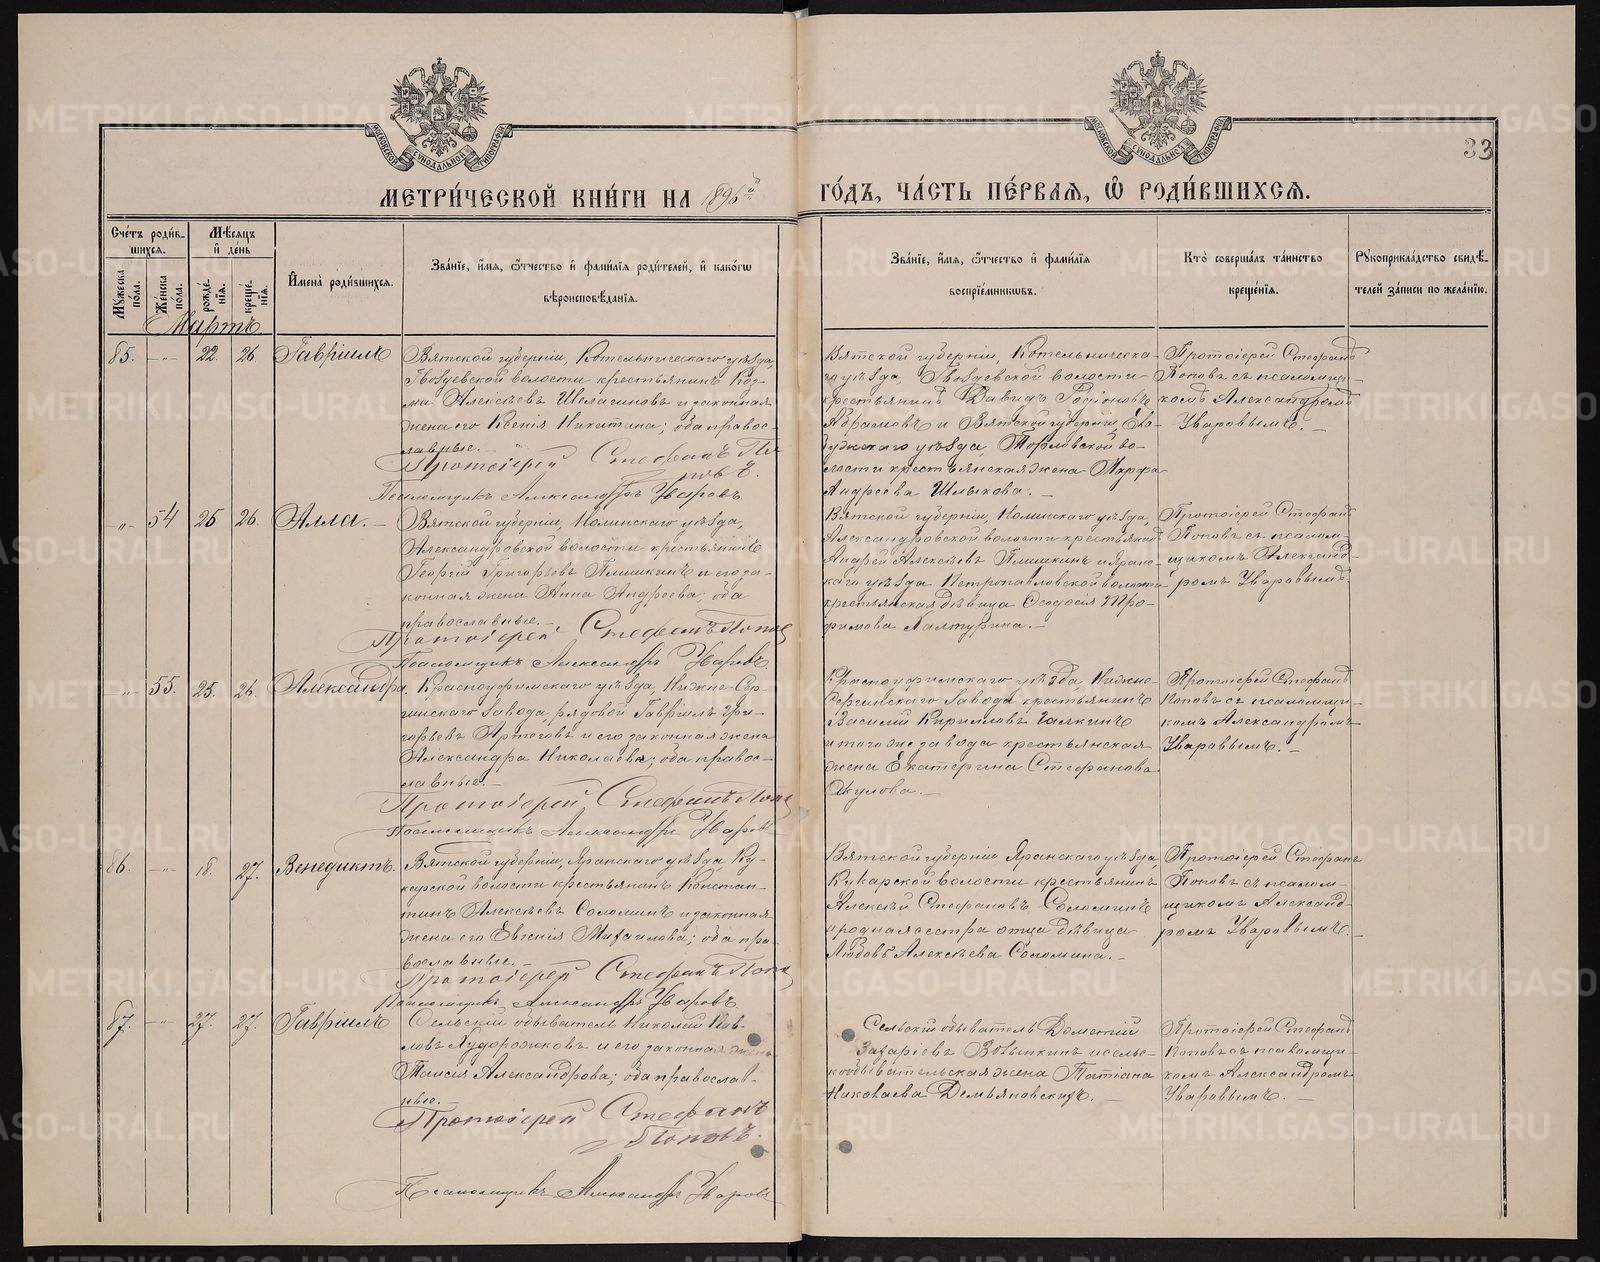 МОСКОВСКОЙ СѴНОДАЛЬНОЙ ТИПОГРАФІИ
МОСКОВСКОЙ СѴНОДАЛЬНОЙ ТИПОГРАФІИ
33
МЕТРИ́ЧЕСКОЙ КНИ́ГИ НА 1896й ГО́ДЪ, ЧА́СТЬ ПЕ́РВАЯ, Ѡ РОДИ́ВШИХСЯ.
Сче́тъ роди́в-
шихся.
Мꙋжеска по́ла.
Же́нска по́ла.
Мѣ́сяцъ
и҆ де́нь
рожде́-
нія.
креще́-
нія.
И҆мена̀ роди́вшихся.
Зва́ніе, и҆́мя, ѻ҆́тчество и҆ фами́лія роди́телей, и҆ како́гѡ
вѣроисповѣ́данія.
Зва́ніе, и҆́мя, ѻ҆́тчество и҆ фами́лія
воспріе́мникѡвъ.
Кто̀ соверша́лъ та́инство
креще́нія.
Рꙋкоприкла́дство свидѣ́-
телей за́писи по жела́нію.
Мартъ.
85. —„— 22 26 Гавріилъ
Вятской губерніи, Котельническаго уѣзда,
Гвоздевской волости крестьянинъ Коз-
ма Алексѣевъ Шелагиновъ и законная
жена его Ксенія Никитина; оба правос-
лавные. —
Протоіерей Стефанъ По-
повъ.
Псаломщикъ Александръ Уваровъ
Вятской губерніи, Котельническа-
го уѣзда, Гвоздевской волости
крестьянинъ Давидъ Родіоновъ
Абрамовъ и Вятской губерніи, Ело-
бужскаго уѣзда, волости крестьянская жена Марфа
Андреева Шлыкова. —
Протоіерей Стефанъ
Поповъ съ псаломщи-
комъ Александромъ
Уваровымъ. —
—„— 54 25 26 Алла. —
Вятской губерніи, Нолинскаго уѣзда,
Александровской волости крестьянинъ
Георгій Григорьевъ Плишкинъ и его за-
конная жена Анна Андреева; оба
православные. —
Протоіерей Стефанъ Попов
Псаломщикъ Александръ Уваровъ.
Вятской губерніи, Нолинскаго уѣзда,
Александровской волости крестьянинъ
Андрей Алексѣевъ Плишкинъ и Яранс-
каго уѣзда Петропавловской волости
крестьянская дѣвица Ѳеодосія Тро-
фимова Халтурина. —
Протоіерей Стефанъ
Поповъ съ псалом-
щикомъ Александ-
ромъ Уваровымъ.
—„— 55. 25. 26. Александра.
Красноуфимскаго уѣзда, Нижне-Сер-
гинскаго завода, рядовой Гавріилъ Гри-
горьевъ Артоговъ и его законная жена
Александра Николаева; оба правос-
лавные. —
Протоіерей Стефанъ Попов
Псаломщикъ Александръ Уваровъ
Красноуфимскаго уѣзда Нижне-
Сергинскаго завода крестьянинъ
Василій Кирилловъ Галкинъ
и того же завода крестьянская
жена Екатерина Стефанова
Окулова. —
Протоіерей Стефанъ
Поповъ съ псаломщи-
комъ Александромъ
Уваровымъ. —
86. —„— 18. 27. Венедиктъ.
Вятской губерніи, Яранскаго уѣзда Ку-
карской волости крестьянинъ Констан-
тинъ Алексѣевъ Соломинъ и законная
жена его Евгенія Михаилова; оба пра-
вославные. —
Протоіерей Стефанъ Попов
Псаломщикъ Александръ Уваровъ
Вятской губерніи Яранскаго уѣзда
Кукарской волости крестьянинъ
Алексѣй Стефановъ Соломинъ
и родная сестра отца дѣвица
Любовь Алексѣева Соломина. —
Протоіерей Стефанъ
Поповъ съ псалом-
щикомъ Александ-
ромъ Уваровымъ.
87. —„— 27. 27. Гавріилъ
Сельскій обыватель Николай Пав-
ловъ Худорожковъ и его законная жена
Таисія Александрова; оба православ-
ные. —
Протоіерей Стефанъ
Поповъ.
Псаломщикъ Александръ Уваровъ
Сельскій обыватель Дометій
Захаріевъ Вотькинъ и сельс-
кообывательская жена Татіана
Николаева Демьяновскихъ. —
Протоіерей Стефанъ
Поповъ съ псаломщи-
комъ Александромъ
Уваровымъ. —
METRIKI.GASO-URAL.RU